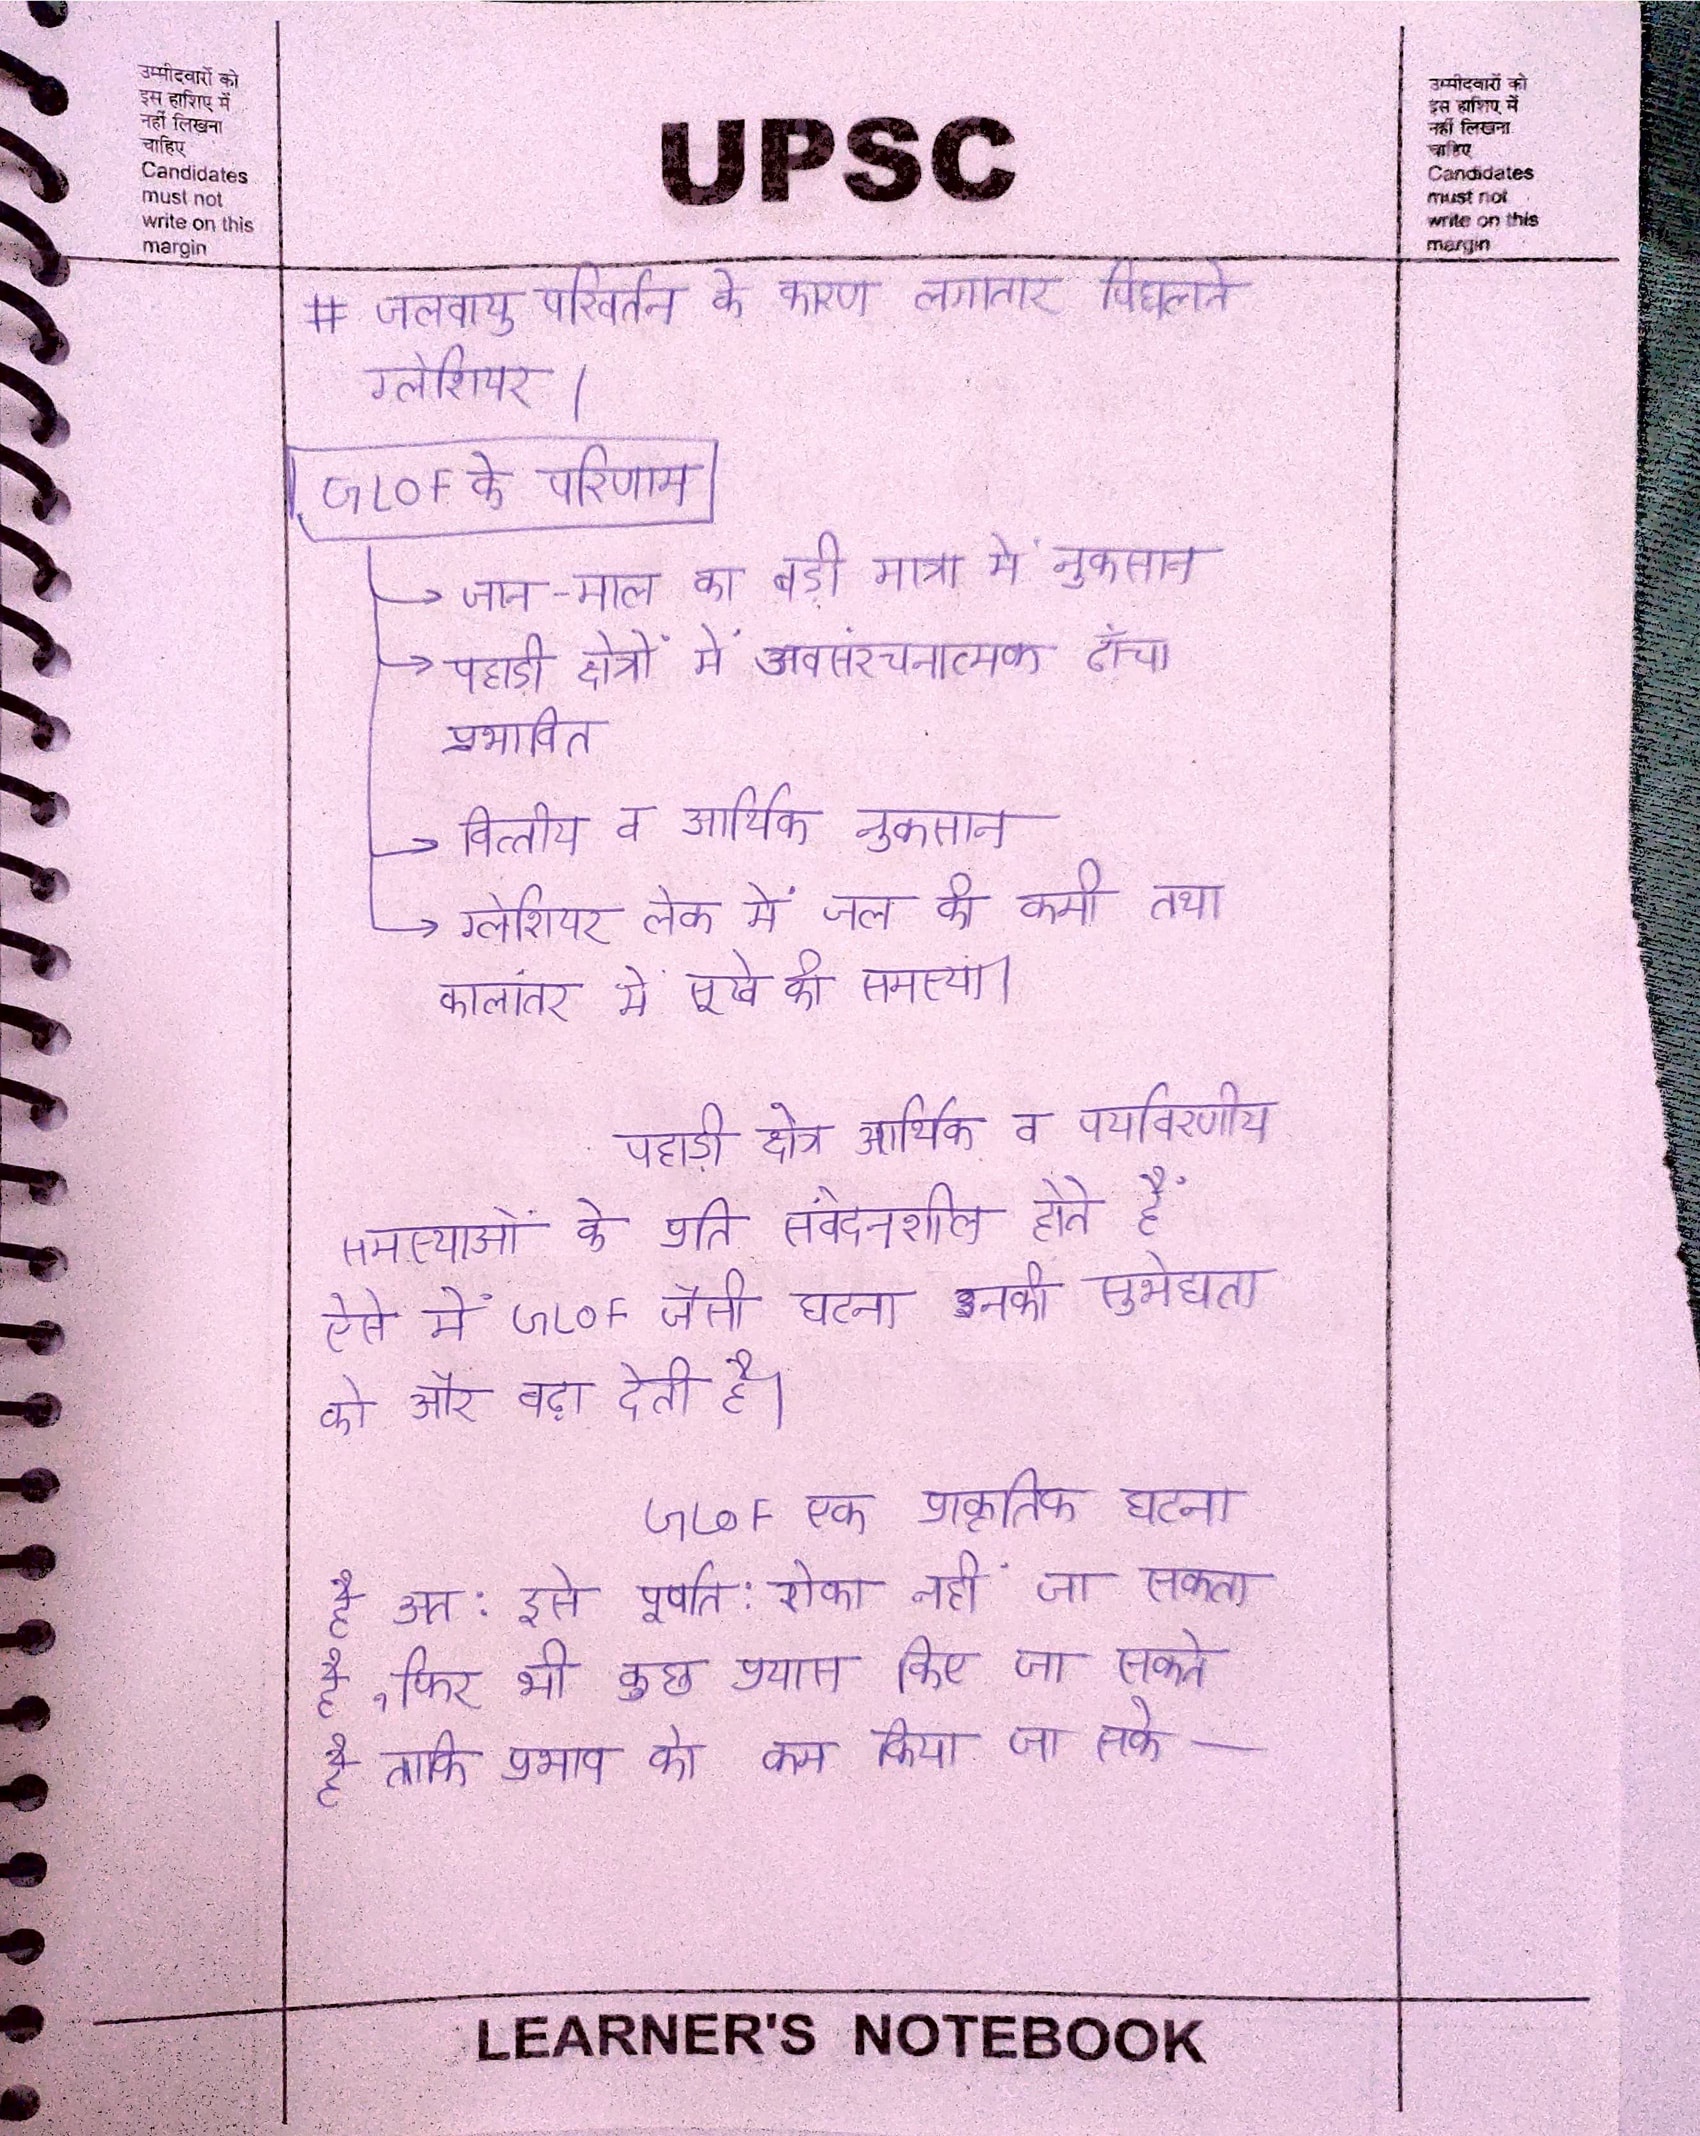 उम्मीदवारों को
इस हाशिए में
नहीं लिखना
चाहिए
Candidates
must not
write on this
margin
UPSC
उम्मीदवारों को
इस हाशिए में
नहीं लिखना
चाहिए
Candidates
must not
write on this
margin
# जलवायु परिवर्तन के कारण लगातार पिघलते
ग्लेशियर ।
GLOF के परिणाम
→ जान-माल का बड़ी मात्रा में नुकसान
→ पहाडी क्षेत्रों में अवसंरचनात्मक ढाँचा
प्रभावित
→ वित्तीय व आर्थिक नुकसान
→ ग्लेशियर लेक में जल की कमी तथा
कालांतर में सूखे की समस्या।
पहाड़ी क्षेत्र आर्थिक व पर्यावरणीय
समस्याओं के प्रति संवेदनशील होते हैं
ऐसे में GLOF जैसी घटना उनकी सुभेद्यता
को और बढ़ा देती है।
GLOF एक प्राकृतिक घटना
है अत: इसे पूर्णत: रोका नहीं जा सकता
है, फिर भी कुछ प्रयास किए जा सकते
है ताकि प्रभाव को कम किया जा सके —
LEARNER'S NOTEBOOK